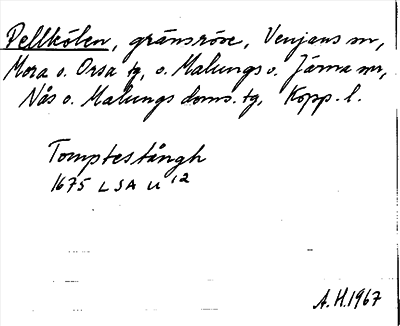 Pellkölen, gränsröse, Venjans sn,
Mora o. Orsa tg, o. Malungs o. Järna snr,
Nås o. Malungs doms. tg, Kopp. l.
Tomptestångh
1675 LSA U 12
A.H. 1967